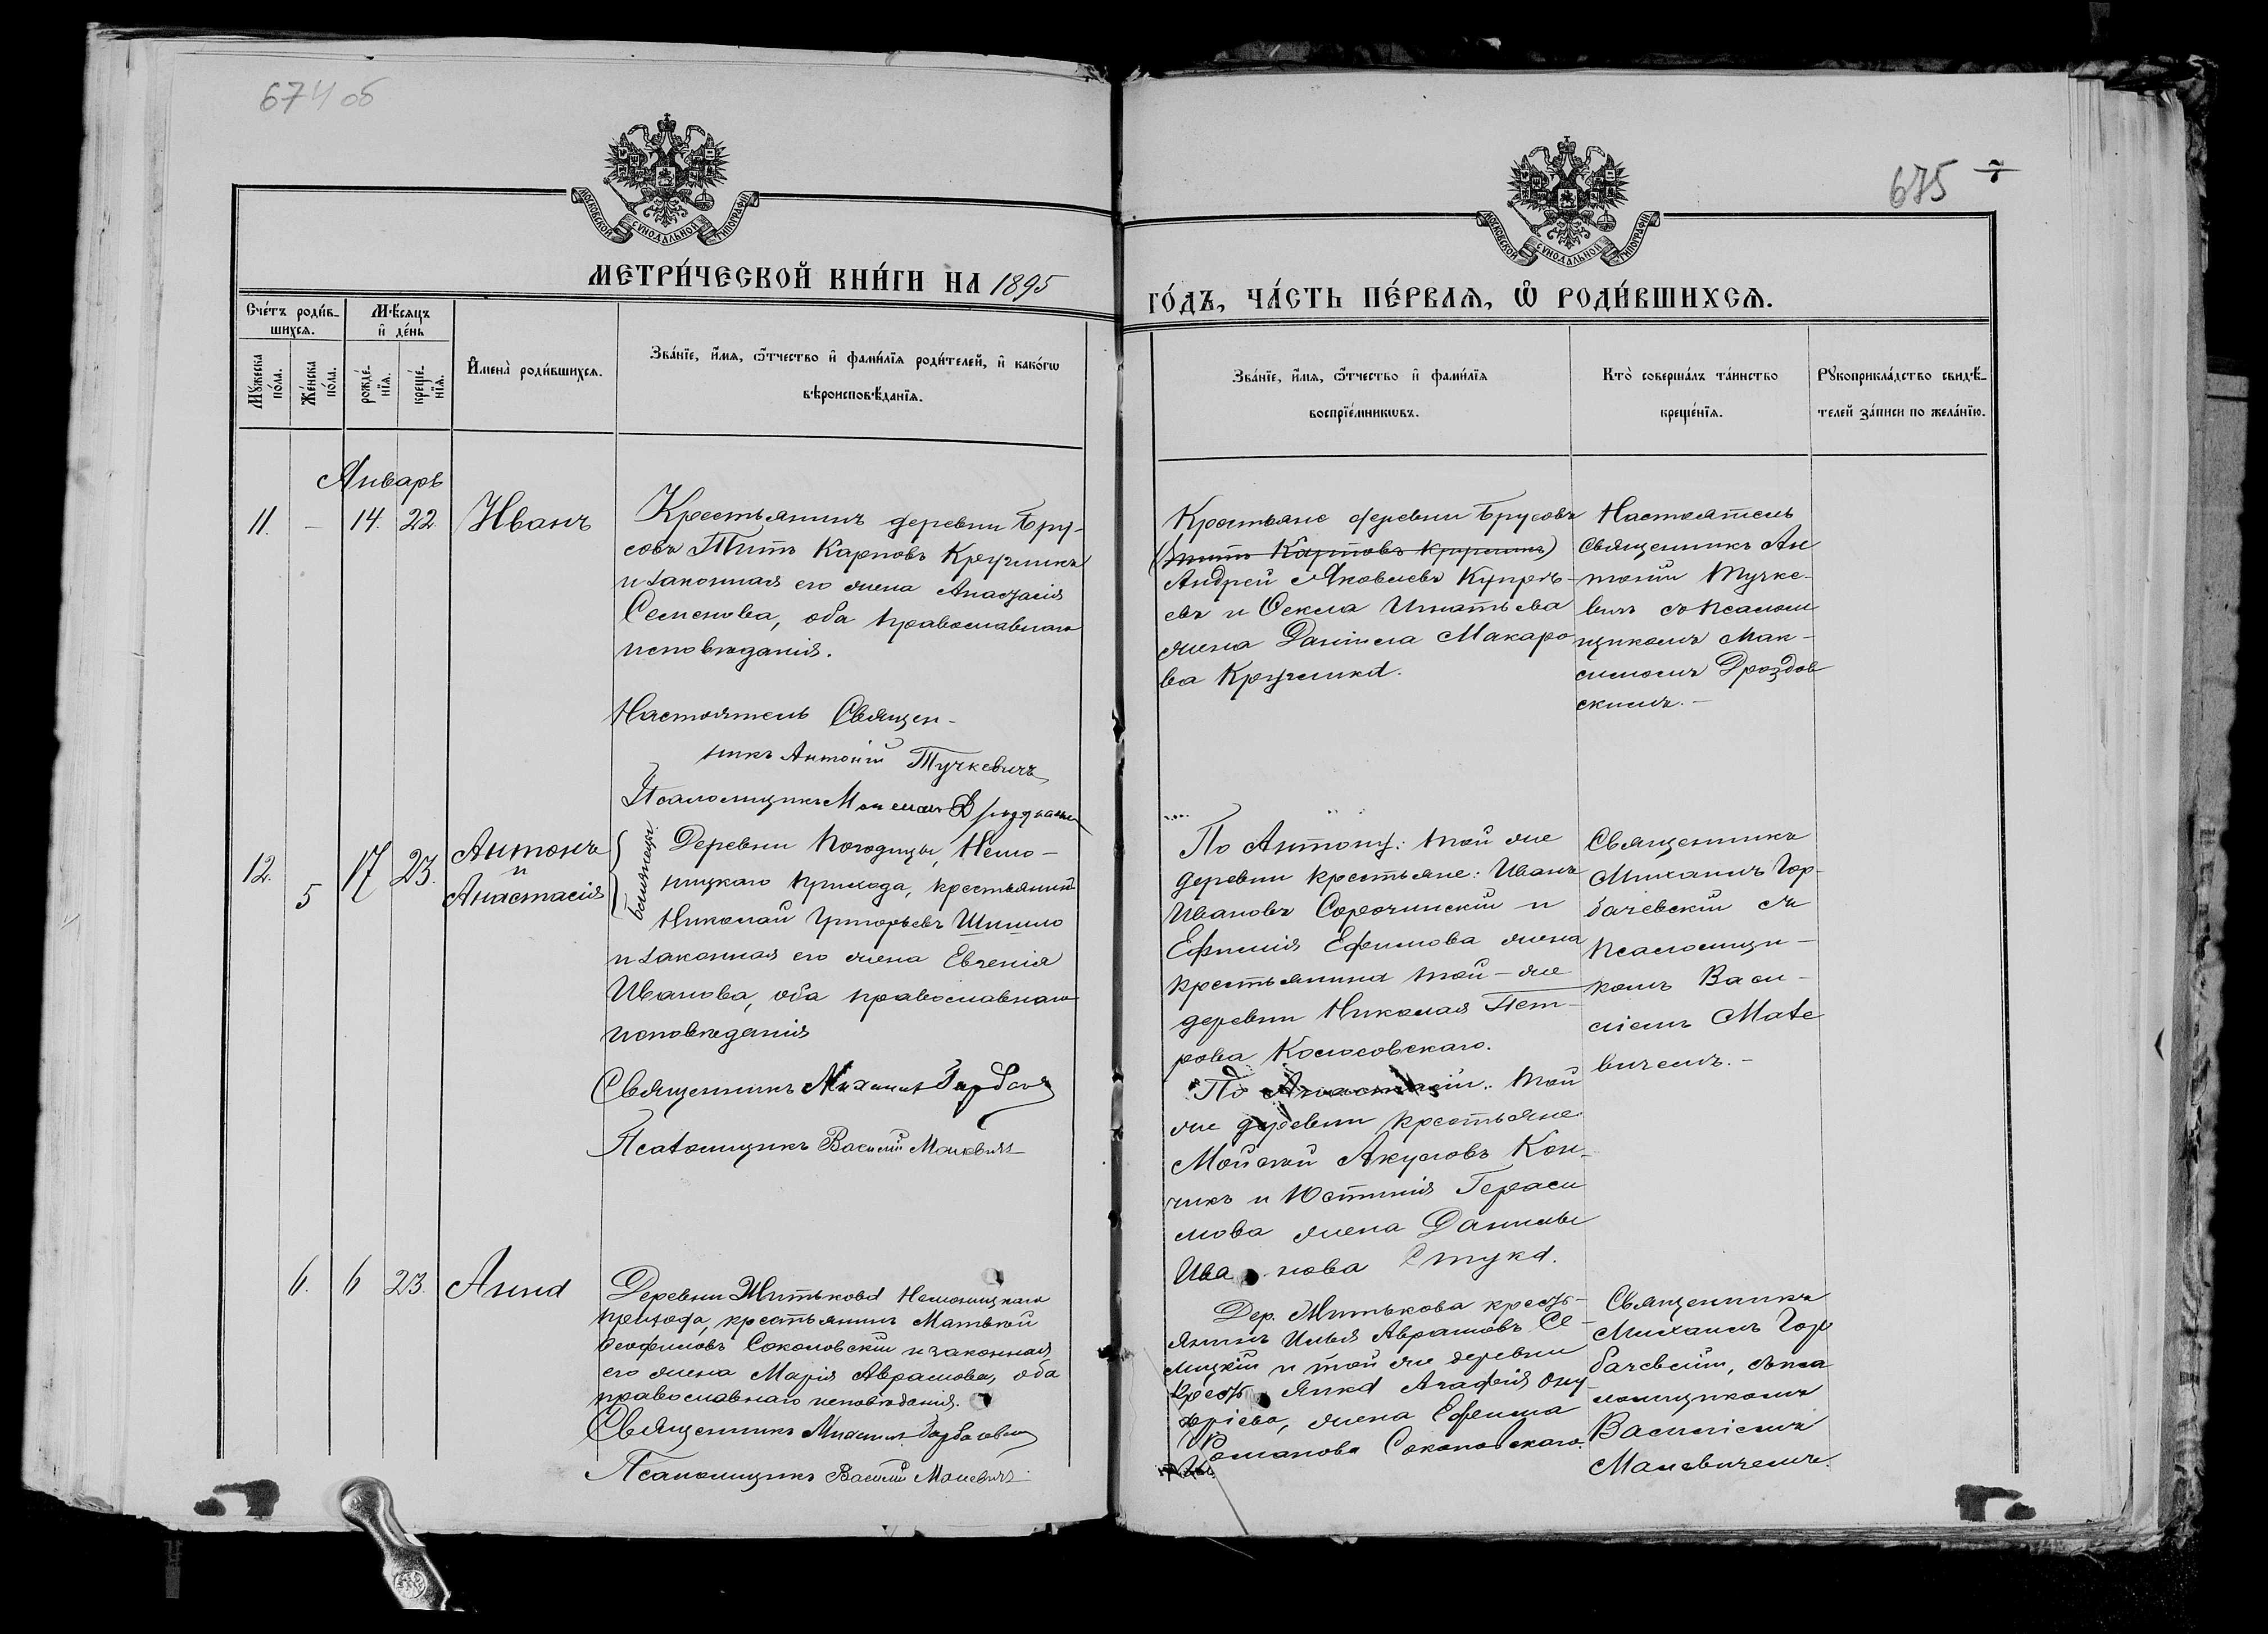 674 об
МОСКОВСКОЙ СѴНОДАЛЬНОЙ ТИПОГРАФІИ
МЕТРИ́ЧЕСКОЙ КНИ́ГИ НА 1895
Сче́тъ роди́в-
шихсѧ.
Мѣ́сѧцъ
и҆ де́нь
Мꙋ́жеска
по́ла.
Же́нска
по́ла.
рожде́-
нїѧ.
креще́-
нїѧ.
И҆мена̀ роди́вшихсѧ.
Зва́нїе, и҆́мѧ, ѻ҆́тчество и҆ фами́лїѧ роди́телей, и҆ како́гѡ
вѣроисповѣ́данїѧ.
Январь
11. – 14. 22. Иванъ
Крестьянинъ деревни Бру-
совъ Титъ Карповъ Кругликъ
и законная его жена Анастасія
Семенова, оба православнаго
исповѣданія.
Настоятель Священ-
никъ Антоній Тучкевичъ
Псаломщикъ
12. 5 17 23. Антонъ
и
Анастасія
близнецы
Деревни Погодицы, Немо-
ницкаго прихода, крестьянинъ
Николай Григорьевъ Шишло
и законная его жена Евгенія
Иванова, оба православнаго
исповѣданія
Священникъ Михаилъ
Псаломщикъ Василій
6. 6 23. Анна
Деревни Житькова Немоницкаго
прихода, крестьянинъ Матвѣй
Ѳеофиловъ Соколовскій и законная
его жена Марія Аврамова, оба
православнаго исповѣданія.
Священникъ Михаилъ Горбачевскій
Псаломщикъ Василій
675
МОСКОВСКОЙ СѴНОДАЛЬНОЙ ТИПОГРАФІИ
ГО́ДЪ, ЧА́СТЬ ПЕ́РВАѦ, Ѽ РОДИ́ВШИХСѦ.
Зва́нїе, и҆́мѧ, ѻ҆́тчество и҆ фами́лїѧ
воспрїе́мникѡвъ.
Кто̀ соверша́лъ та́инство
креще́нїѧ.
Рꙋкоприкла́дство свидѣ́-
телей за́писи по жела́нїю.
Крестьяне деревни Брусовъ
(Титъ Карповъ Кругликъ)
Андрей Яковлевъ Купрѣ-
евъ и Ѳекла Игнатьева
жена Даніила Макаро
ва Круглика.
Настоятель
священникъ Ан
тоній Тучке-
вичъ съ псаломщ
щикомъ Мак-
симомъ Дроздов
скимъ. –
По Антону: той же
деревни крестьяне: Иванъ
Ивановъ Сорочинскій и
Ефимія Ефимова жена
крестьянина той-же
деревни Николая Пет-
рова Колосовскаго.
По Анастасіи: той
же деревни крестьяне
Мойсей Акуловъ Кон-
чикъ и Юстинія Гераси
мова жена Данилы
Иванова Стука.
Священникъ
Михаилъ Гор-
бачевскій съ
псаломщи-
комъ Васи-
ліемъ
вичемъ. –
Дер. Житькова кресть-
янинъ Илья Аврамовъ Се-
лицкій и той же деревни
крестьянка Агафія Ону
фріева, жена Ефима
Романова Соколовскаго.
Священникъ
Михаилъ Гор
бачевскій, съ пса
ломщикомъ
Василіемъ